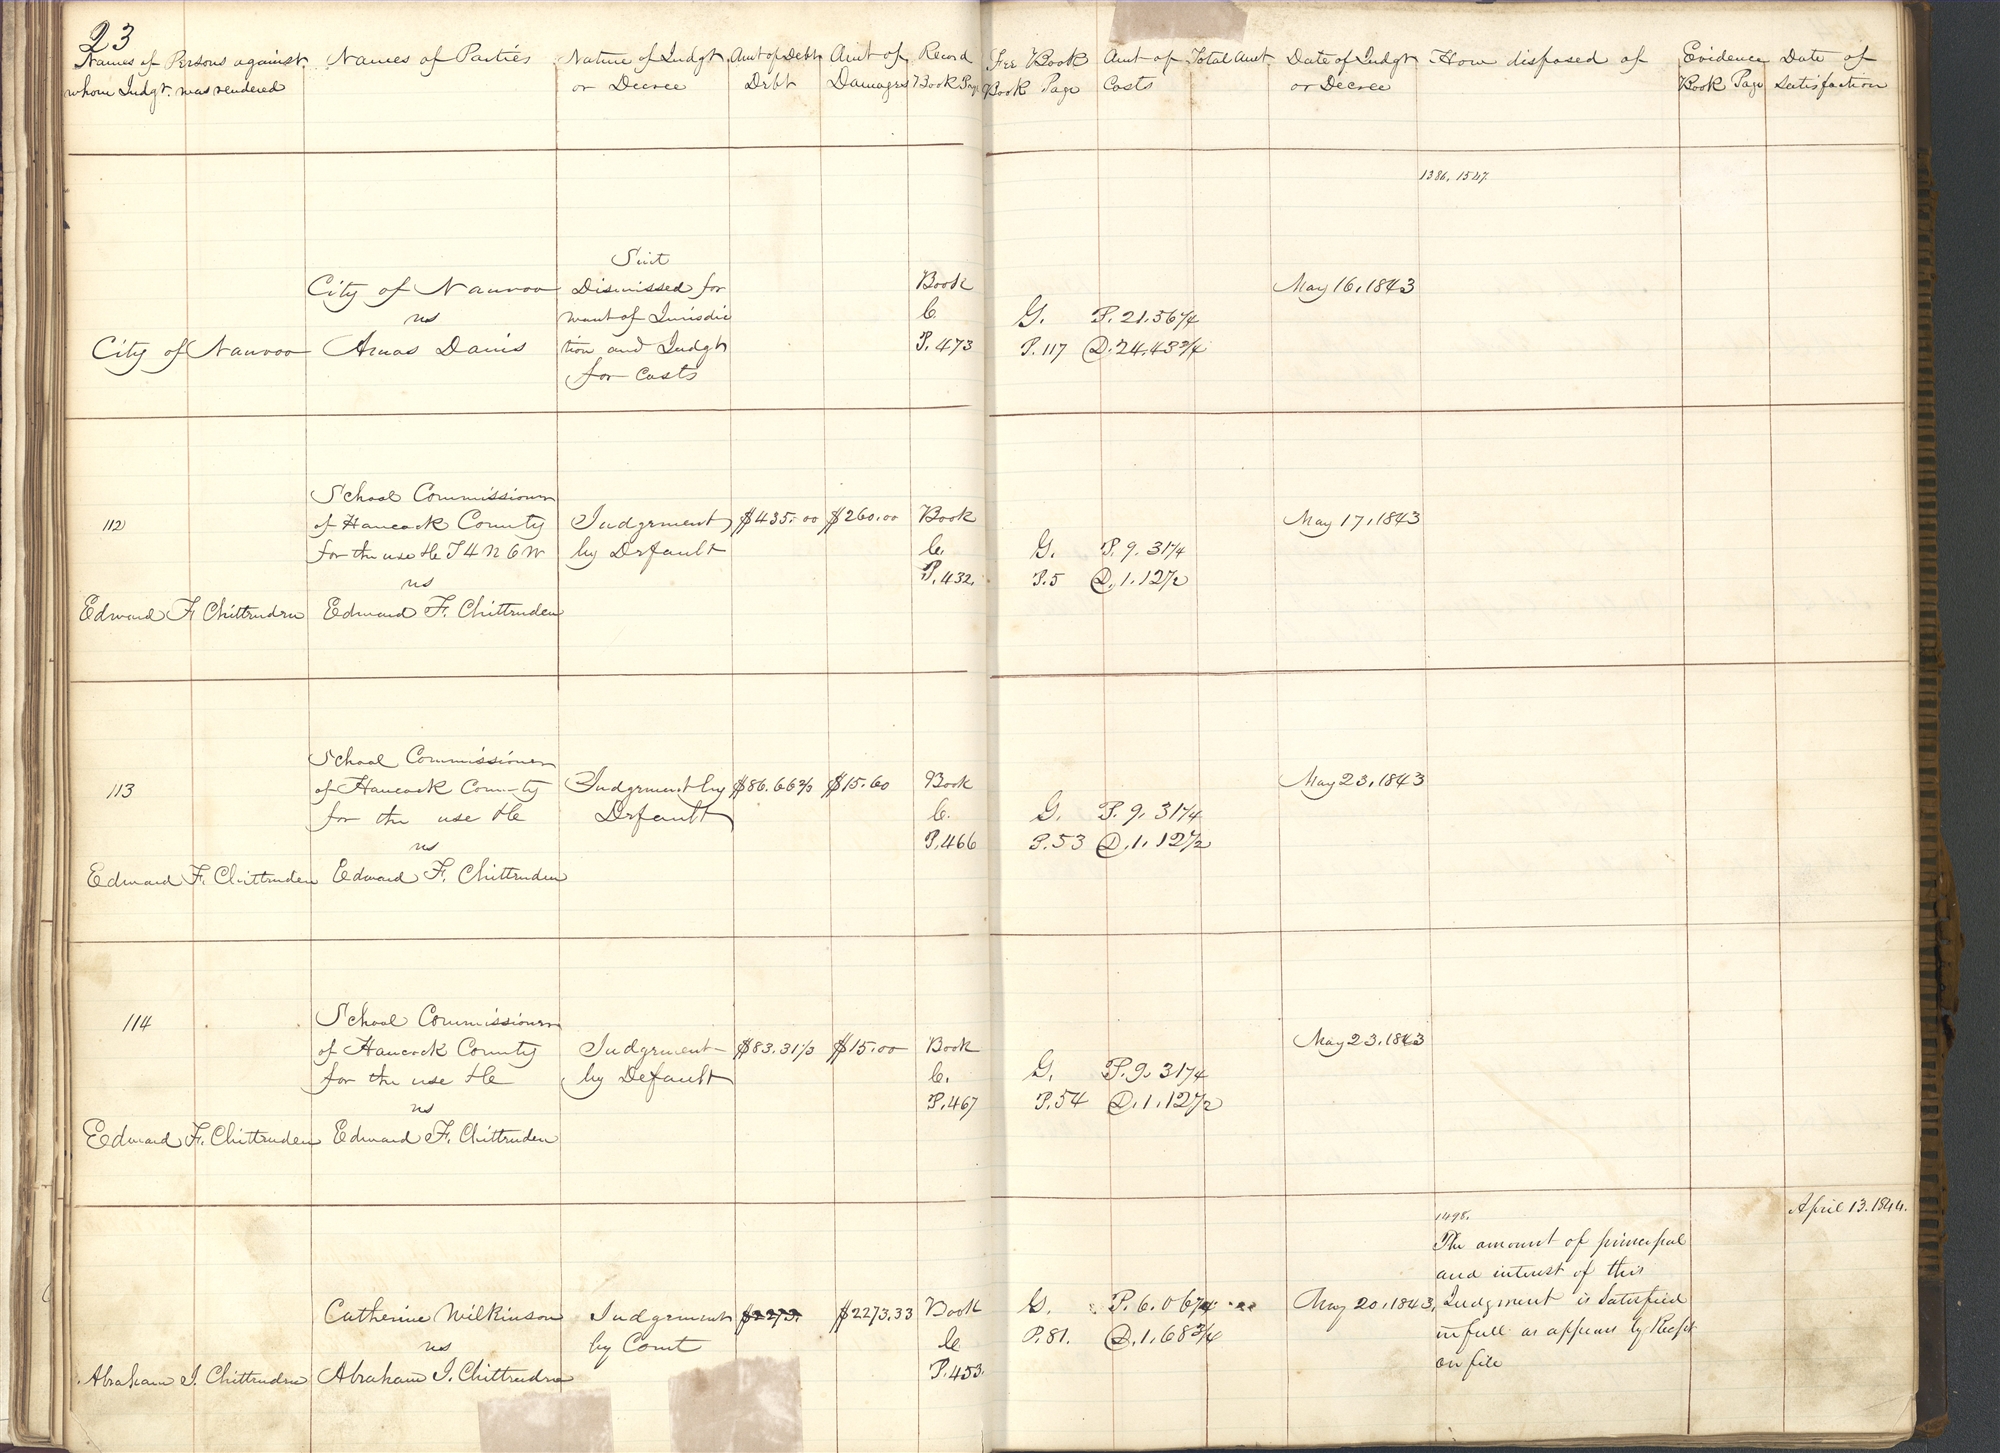 23
Names of Persons against whom Judgt. was rendered
Names of Parties
Nature of Judgt or Decree
Amt of Debt Debt
Amt of Damages
Record Book Page
Fee Book Book Page
Amt of Costs
Total Amt
Date of Judgt or Decree
How disposed of
Evidence Book Page
Date of Satisfaction
1386, 1547.
City of Nauvoo
City of Nauvoo
vs
Amos Davis
Suit
Dismissed for
want of Jurisdic
tion and Judgt
for Costs
Book
C
P. 473
G.
P. 117
P. 21.56¼
D. 24.43¾
May 16, 1843
112
Edward F. Chittenden
School Commissioner
of Hancock County
for the use &c T4N6W
vs
Edward F. Chittenden
Judgement
by Default
$435.00
$260.00
Book
C.
P. 432.
G.
P. 5
P. 9.31¼
D. 1.12½
May 17, 1843
113
Edward F. Chittenden
School Commissioner
of Hancock County
for the use &c
vs
Edward F. Chittenden
Judgement by
Default
$86.66⅔
$15.60
Book
C.
P. 466
G.
P. 53
P. 9.31¼
D. 1.12½
May 23, 1843
114
Edward F. Chittenden
School Commissioner
of Hancock County
for the use &c
vs
Edward F. Chittenden
Judgement
by Default
$83.31⅓
$15.00
Book
C.
P. 467
G.
P. 54
P. 9.31¼
D. 1.12½
May 23, 1843
Abraham I. Chittenden
Catherine Wilkinson
vs
Abraham I. Chittenden
Judgement
by Court
$2273.
$2273.33
Book
C
P. 453.
G.
P. 81.
P. 6.06¼
D. 1.68¾
May 20, 1843,
1498.
The amount of principal
and interest of this
Judgment is Satisfied
in full as appears by Receipt
on file
April 13. 1844.